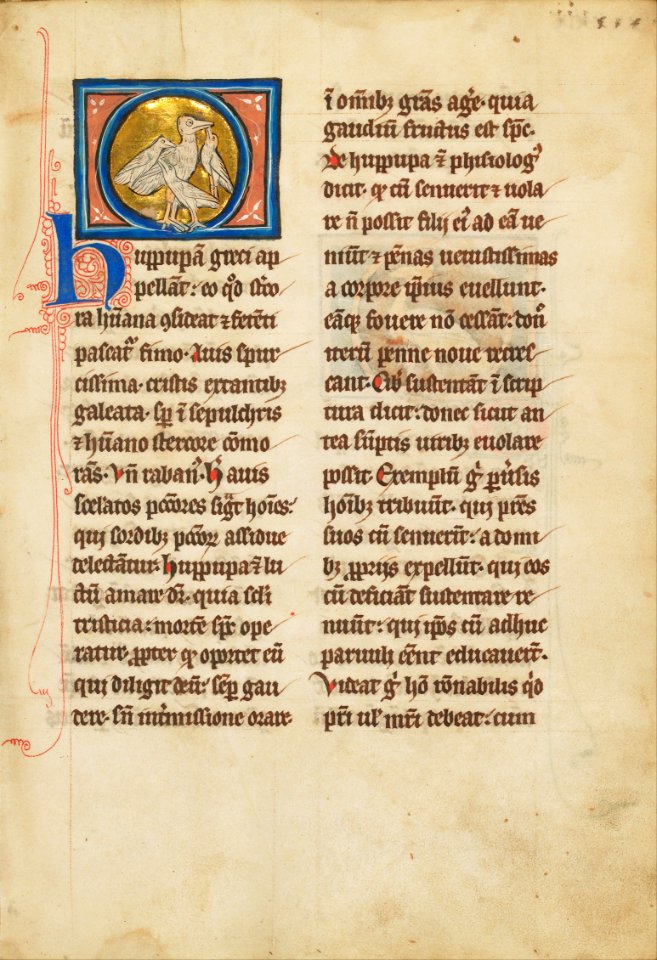 huppupā greci ap
pellāt: eo qd̄ stco
ra hūana ꝯsideat ⁊ feteti
pascat᷑ fimo. Auis spur
cissima. cristis extantibꝫ
galeata. sp̄ ī sepulchris
⁊ hūano stercore cōmo
rās. Vn̄ raban᷒. H̄ auis
scelatos pccōres sigt̄ hoīes:
qui sordibꝫ pccōꝝ assidue
delectātur. huppupa ⁊ lu
ctū amare dr̄. quia scłi
tristicia: mortē spc̄ ope
ratur. ꝓpter qꝫ oportet eū
qui diligit deū: sēp gau
dere. sn̄ int̄missione orare.
ī om̄ibꝫ grās agˀe. quia
gaudiū fructus est spc̄.
De huppupa ⁊ phisiologˀ
dicit. qꝫ cū senuerit ⁊ uola
re n̄ possit filij eiˀ ad eā ue
niūt ⁊ pēnas uetustissimas
a corpore ipˀius euellunt.
eāqꝫ fouere nō cessāt: donˀ
iterū penne noue recres
cant. Cibˀ sustentāt ī scrip
tura dicit: donec sicut an
tea sūptis uiribꝫ euolare
possit. Exemplū gˀ pr̄isis
hoībꝫ tribuūt. qui prēs
suos cū senuerīt: a domi
bꝫ ꝓprijs expellūt. qui eos
cū deficiāt sustentare re
nuūt: qui ipōs cū adhuc
paruuli eēnt educauert̄.
Videat gˀ hō rōnabilis qd̄
pr̄i ul̓ mr̄i debeat: cum